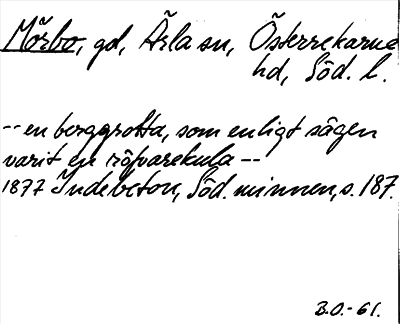 Mörbo, gd, Ärla sn, Österrekarne
hd, Söd. l.
-- en berggrotta, som enligt sägen
varit en röfvarekula --
1877 Indebetou, Söd. minnen, s. 187.
B.O.-61.